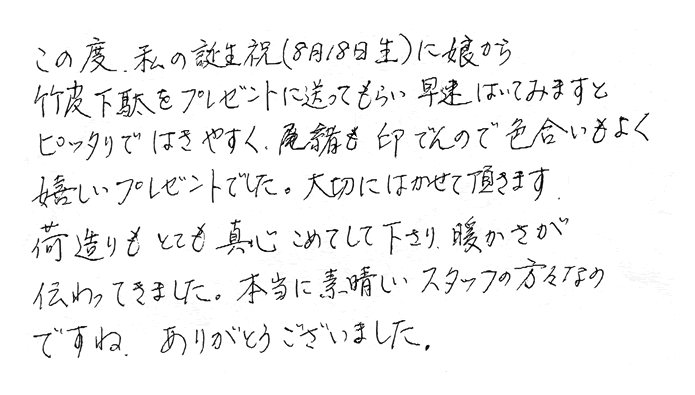 この度、私の誕生祝(8月18日生)に娘から
竹皮下駄をプレゼントに送ってもらい早速はいてみますと
ピッタリではきやすく、鼻緒も印でんので色合いもよく
嬉しいプレゼントでした。大切にはかせて頂きます。
荷造りもとても真心こめてして下さり、暖かさが
伝わってきました。本当に素晴しいスタッフの方々なの
ですね。ありがとうございました。